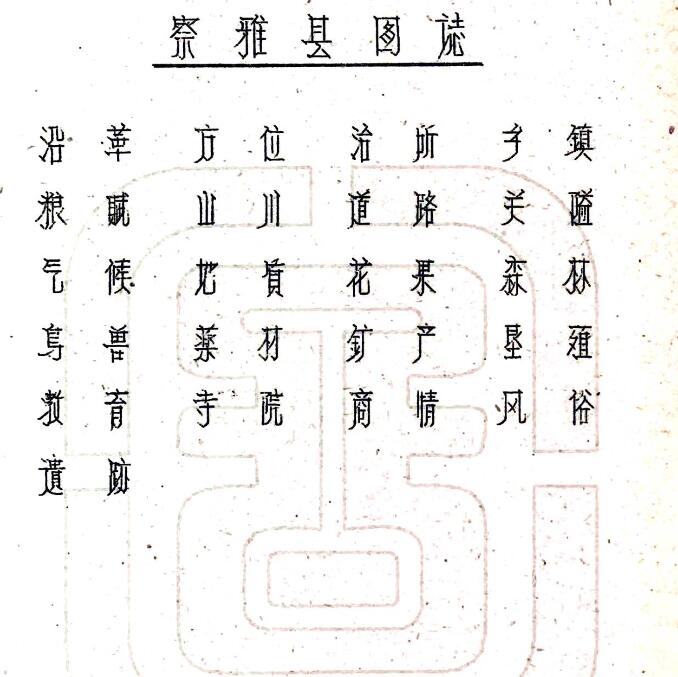 察雅县图志
沿革 方位 治所 乡镇
粮赋 山川 道路 关隘
气候 地質 花果 森林
鸟兽 薬材 矿产 垦殖
教育 寺院 商情 风俗
遺跡